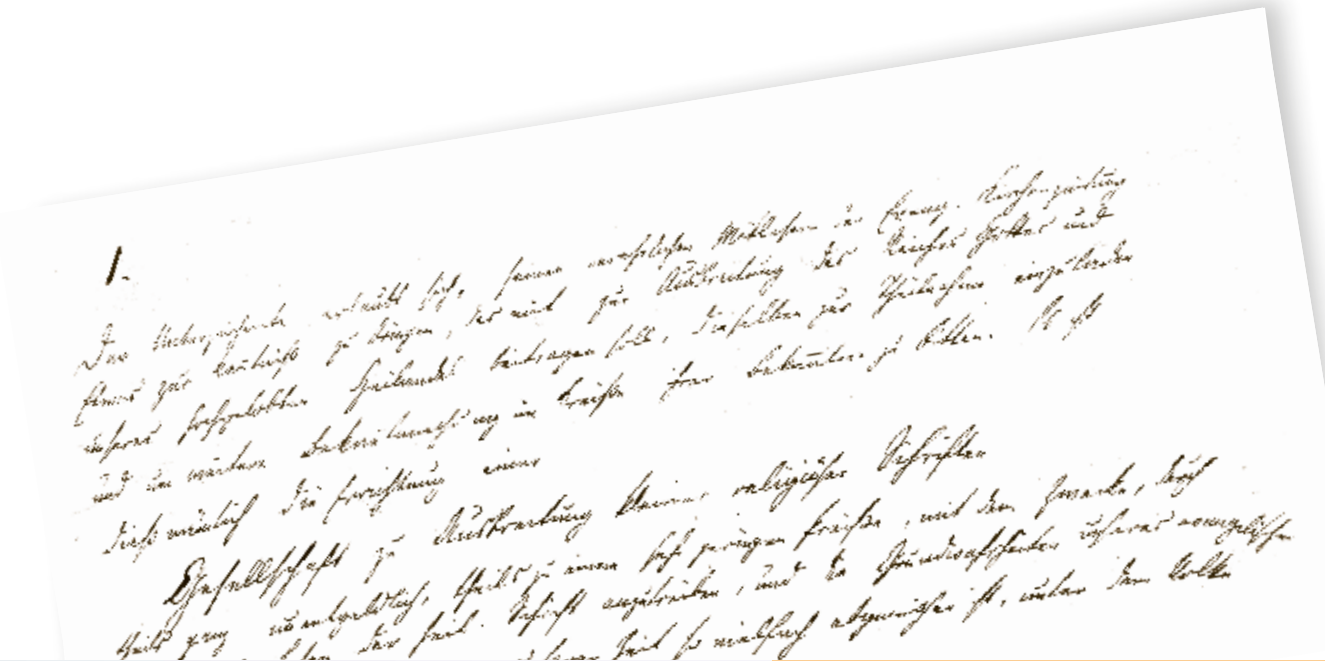 1.
Der Unterzeichnete erlaubt sich, seinen verehrlichen Mitlesern der Evang. Kirchenzeitung
Etwas zur Kenntniß zu bringen, das mit zur Ausbreitung des Reiches Gottes und
unseres hochgelobten Heilandes beitragen soll, dieselben zur Theilnahme einzuladen
und um weitere Bekanntmachung im Kreiße ihrer Bekannten zu bitten. Es ist
dieß nämlich die Errichtung einer
Gesellschaft zu Ausbreitung kleiner religiöser Schriften
theils ganz unentgeldlich, theils zu einem sehr geringen Preiße, mit dem Zwecke, durch
der heil. Schrift anzutreiben, und die Grundwahrheiten unseres evangelischen
Zeit so vielfach abgewichen ist, unter dem Volke